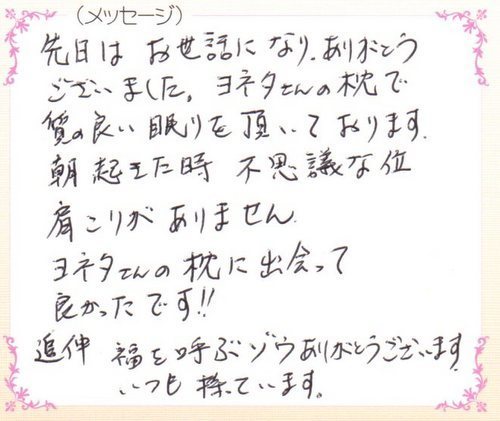 （メッセージ）
先日は お世話になり、ありがとう
ございました。ヨネタさんの枕で
質の良い眠りを頂いております。
朝起きた時 不思議な位
肩こりがありません。
ヨネタさんの枕に出会って
良かったです!!
追伸 福を呼ぶゾウありがとうございます
いつも 撫でています。